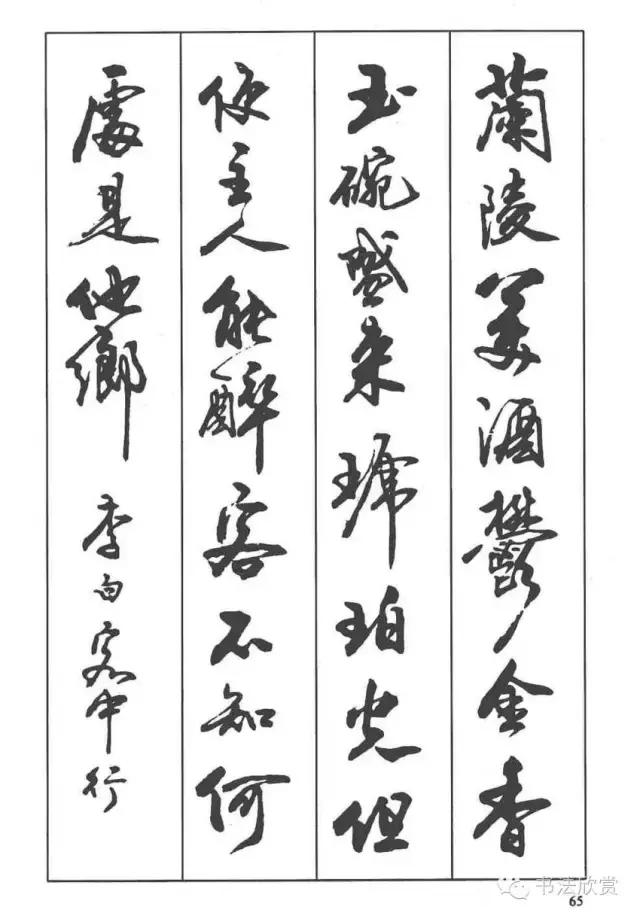 蘭陵美酒鬱金香
玉碗盛来琥珀光但
使主人能醉客不知何
處是他鄉 李白客中行
65
书法欣赏